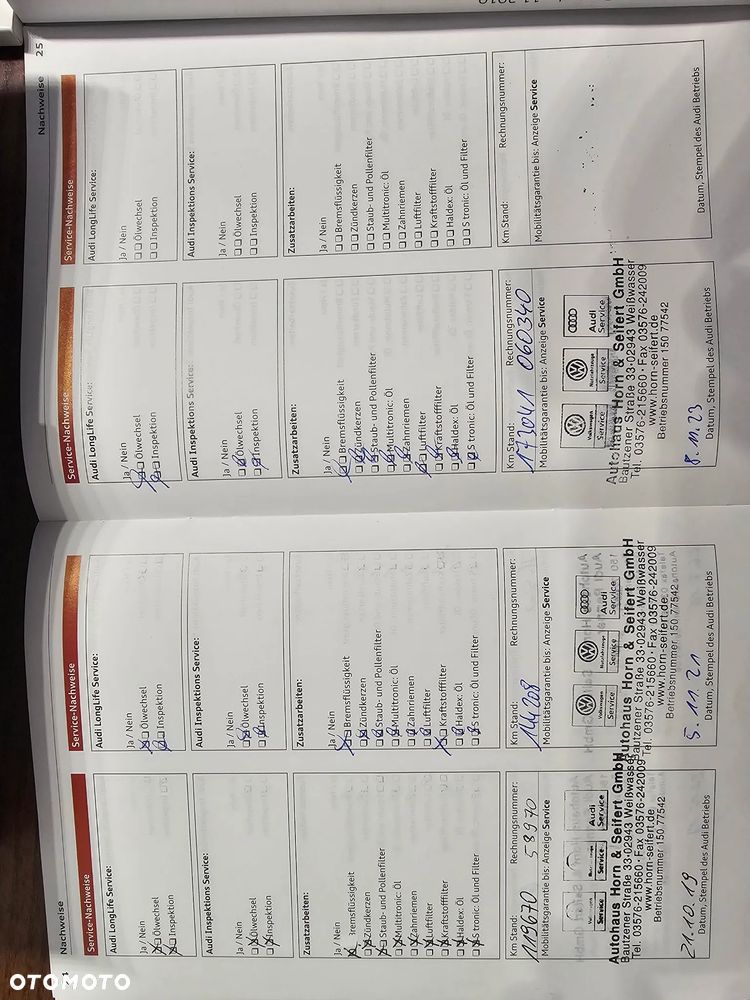 Nachweise
Service-Nachweise
Audi LongLife Service:
Ja / Nein
Ölwechsel
Inspektion
Audi Inspektions Service:
Ja / Nein
Ölwechsel
Inspektion
Zusatzarbeiten:
Ja / Nein
Bremsflüssigkeit
Zündkerzen
Staub- und Pollenfilter
Multitronic: Öl
Zahnriemen
Luftfilter
Kraftstofffilter
Haldex: Öl
S tronic: Öl und Filter
Km Stand: Rechnungsnummer:
119670 58970
Mobilitätsgarantie bis: Anzeige Service
Service Service Audi Service
Autohaus Horn & Seifert GmbH
Bautzener Straße 33·02943 Weißwasser
Tel. 03576-215660·Fax 03576-242009
www.horn-seifert.de
Betriebsnummer 150 77542
21.10.19
Datum, Stempel des Audi Betriebs
Service-Nachweise
Audi LongLife Service:
Ja / Nein
Ölwechsel
Inspektion
Audi Inspektions Service:
Ja / Nein
Ölwechsel
Inspektion
Zusatzarbeiten:
Ja / Nein
Bremsflüssigkeit
Zündkerzen
Staub- und Pollenfilter
Multitronic: Öl
Zahnriemen
Luftfilter
Kraftstofffilter
Haldex: Öl
S tronic: Öl und Filter
Km Stand: Rechnungsnummer:
144208
Mobilitätsgarantie bis: Anzeige Service
Service Service Audi Service
Autohaus Horn & Seifert GmbH
Bautzener Straße 33·02943 Weißwasser
Tel. 03576-215660·Fax 03576-242009
www.horn-seifert.de
Betriebsnummer 150 77542
5.11.21
Datum, Stempel des Audi Betriebs
Service-Nachweise
Audi LongLife Service:
Ja / Nein
Ölwechsel
Inspektion
Audi Inspektions Service:
Ja / Nein
Ölwechsel
Inspektion
Zusatzarbeiten:
Ja / Nein
Bremsflüssigkeit
Zündkerzen
Staub- und Pollenfilter
Multitronic: Öl
Zahnriemen
Luftfilter
Kraftstofffilter
Haldex: Öl
S tronic: Öl und Filter
Km Stand: Rechnungsnummer:
172041 060340
Mobilitätsgarantie bis: Anzeige Service
Service Service Audi Service
Autohaus Horn & Seifert GmbH
Bautzener Straße 33·02943 Weißwasser
Tel. 03576-215660·Fax 03576-242009
www.horn-seifert.de
Betriebsnummer 150 77542
8.11.23
Datum, Stempel des Audi Betriebs
Nachweise 25
Service-Nachweise
Audi LongLife Service:
Ja / Nein
Ölwechsel
Inspektion
Audi Inspektions Service:
Ja / Nein
Ölwechsel
Inspektion
Zusatzarbeiten:
Ja / Nein
Bremsflüssigkeit
Zündkerzen
Staub- und Pollenfilter
Multitronic: Öl
Zahnriemen
Luftfilter
Kraftstofffilter
Haldex: Öl
S tronic: Öl und Filter
Km Stand: Rechnungsnummer:
Mobilitätsgarantie bis: Anzeige Service
Datum, Stempel des Audi Betriebs
OTOMOTO